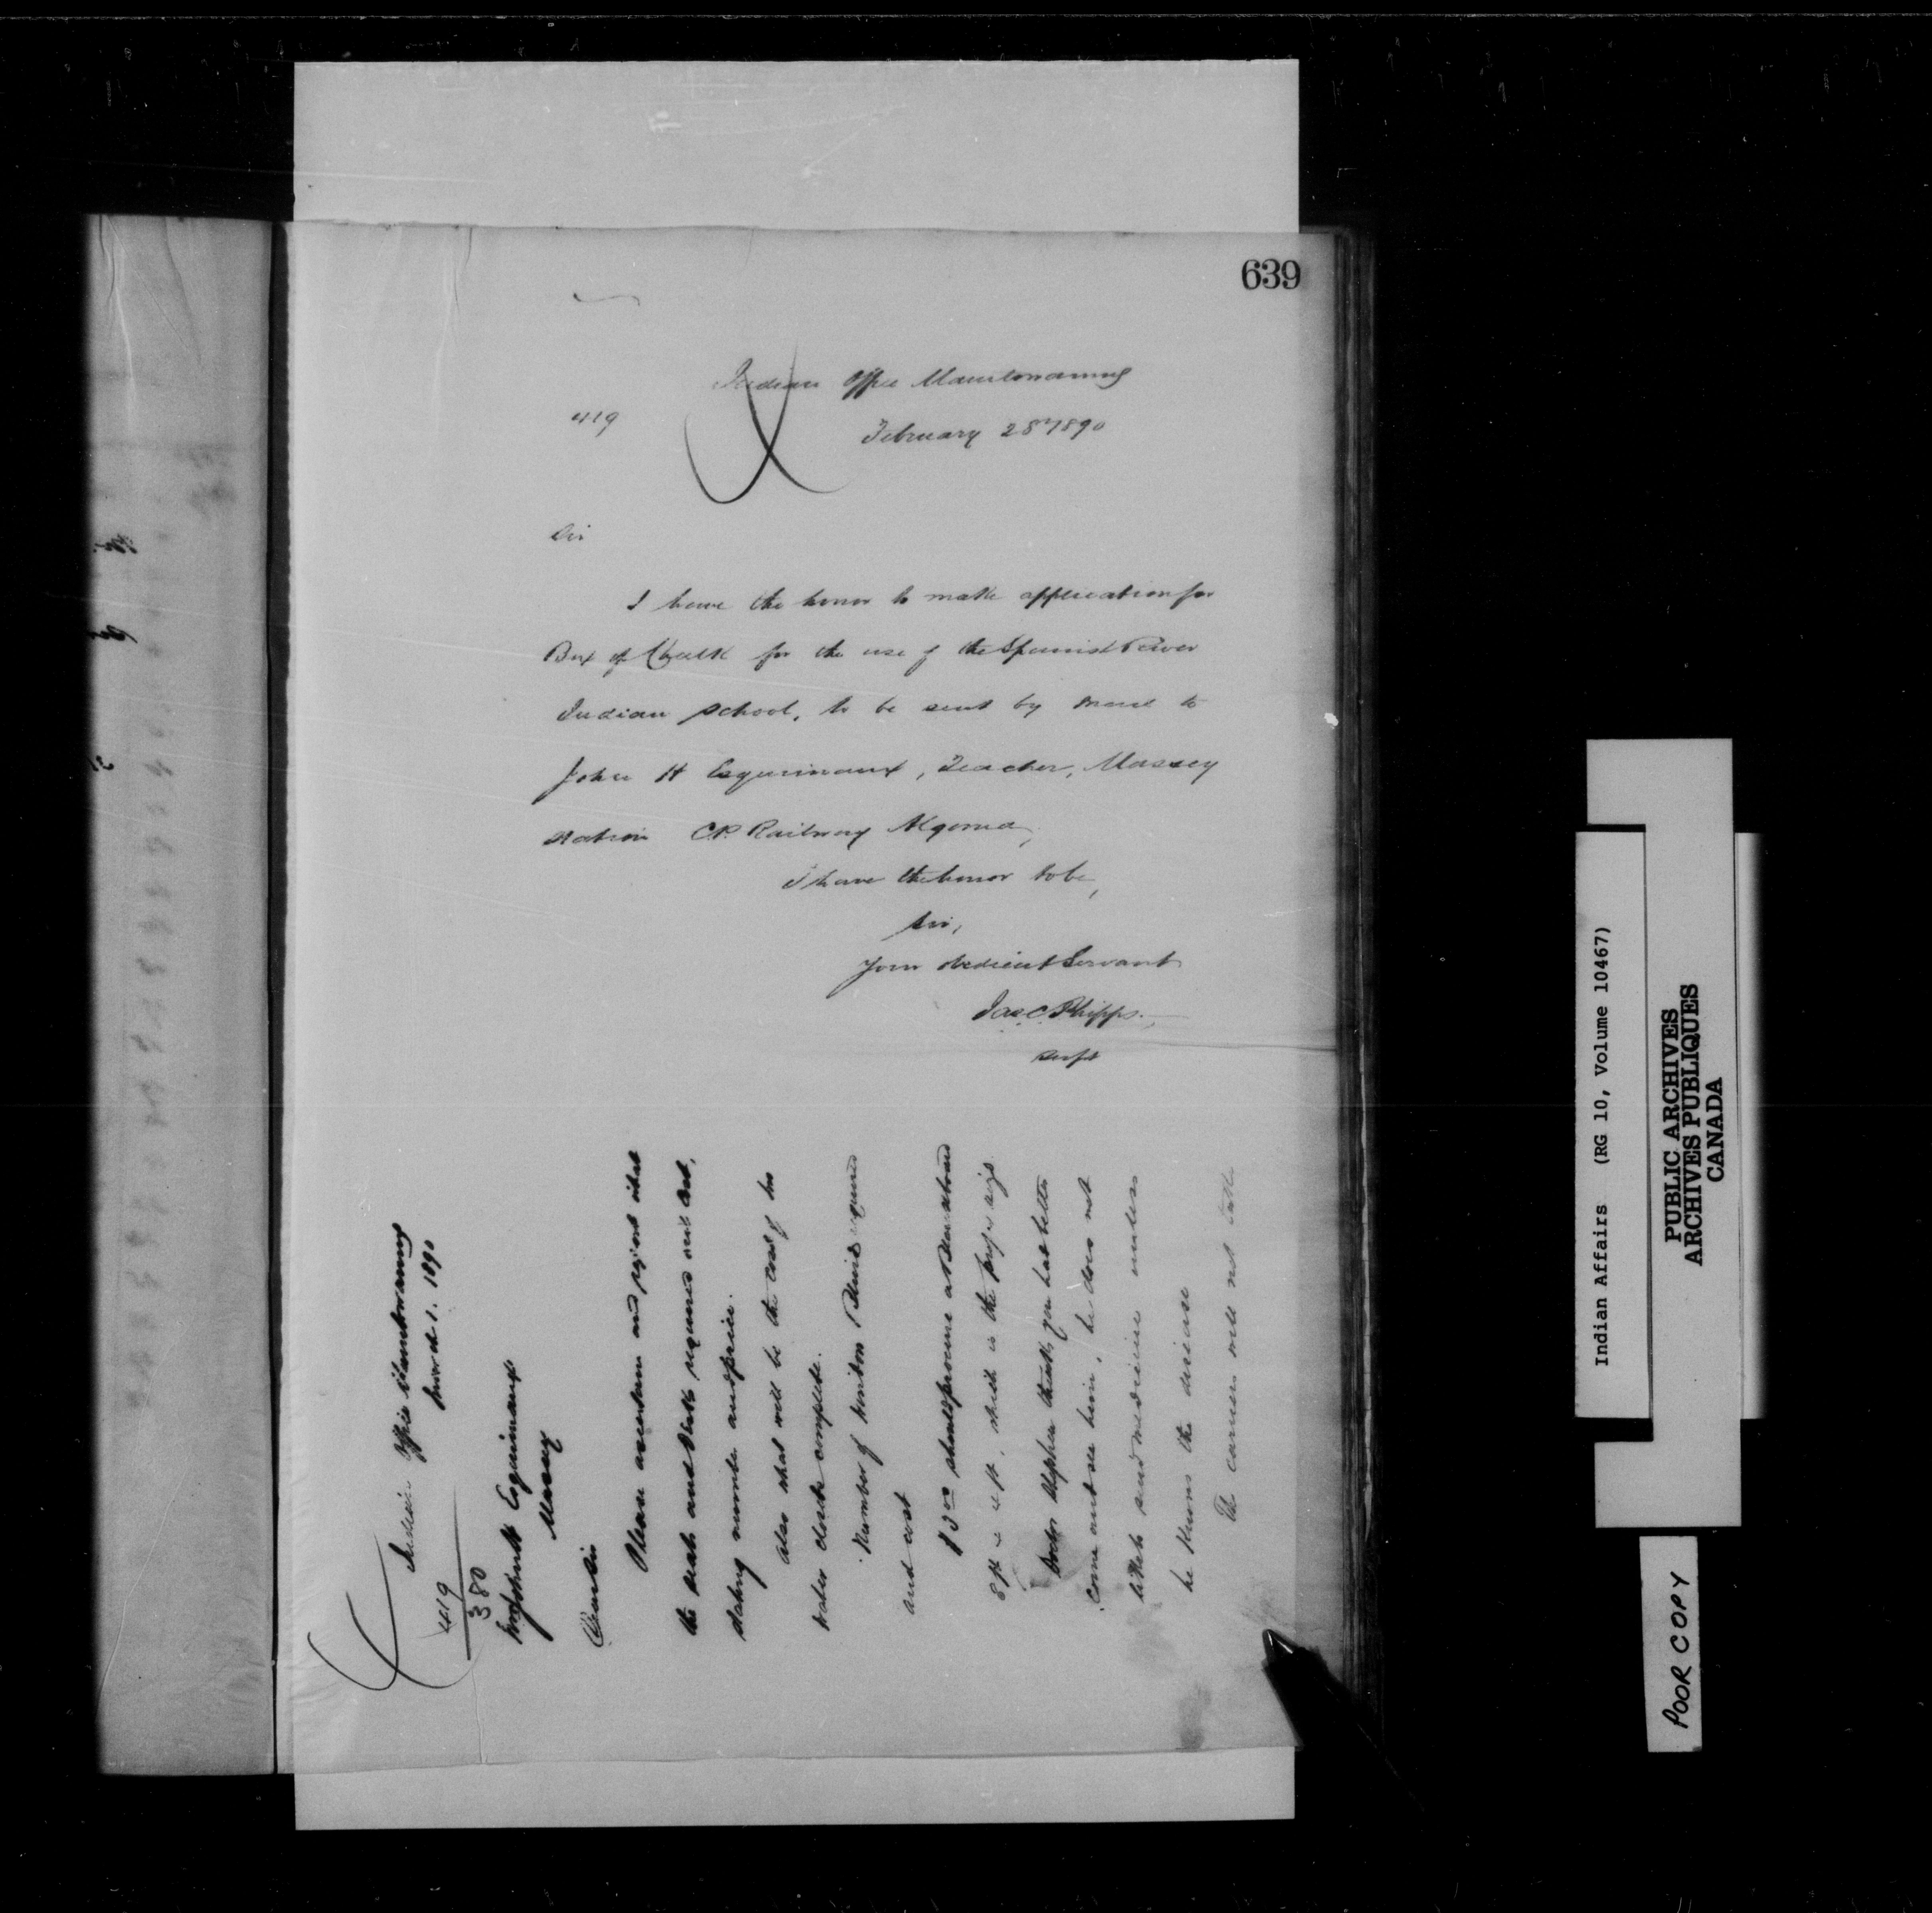 639
Indian Office Manitowaning
419
February 28th 1890
Sir
I have the honor to make application for
Box of Chalk for the use of the Spanish River
Indian school, to be sent by mail to
John H Esquimaux, Teacher, Massey
Station C.P. Railway Algoma,
I have the honor to be,
Sir,
Your obedient Servant
Jas C Phipps.
Supt
Indian Office Manitowaning
March 1. 1890
419
380
Mr John H Esquimaux
Massey
Dear Sir
Please ascertain and report what
the seats and desks required will cost,
stating number and price.
also what will be the cost of the
water closets complete.
Number of window Blinds required
and cost
$3.00 should procure a Blackboard
8 ft x 4 ft. which is the proper size
Doctor Stephen thinks you had better
come and see him, he does not
like to send medicine unless
he knows the disease
The carrier will not take
Indian Affairs (RG 10, Volume 10467)
PUBLIC ARCHIVES
ARCHIVES PUBLIQUES
CANADA
POOR COPY